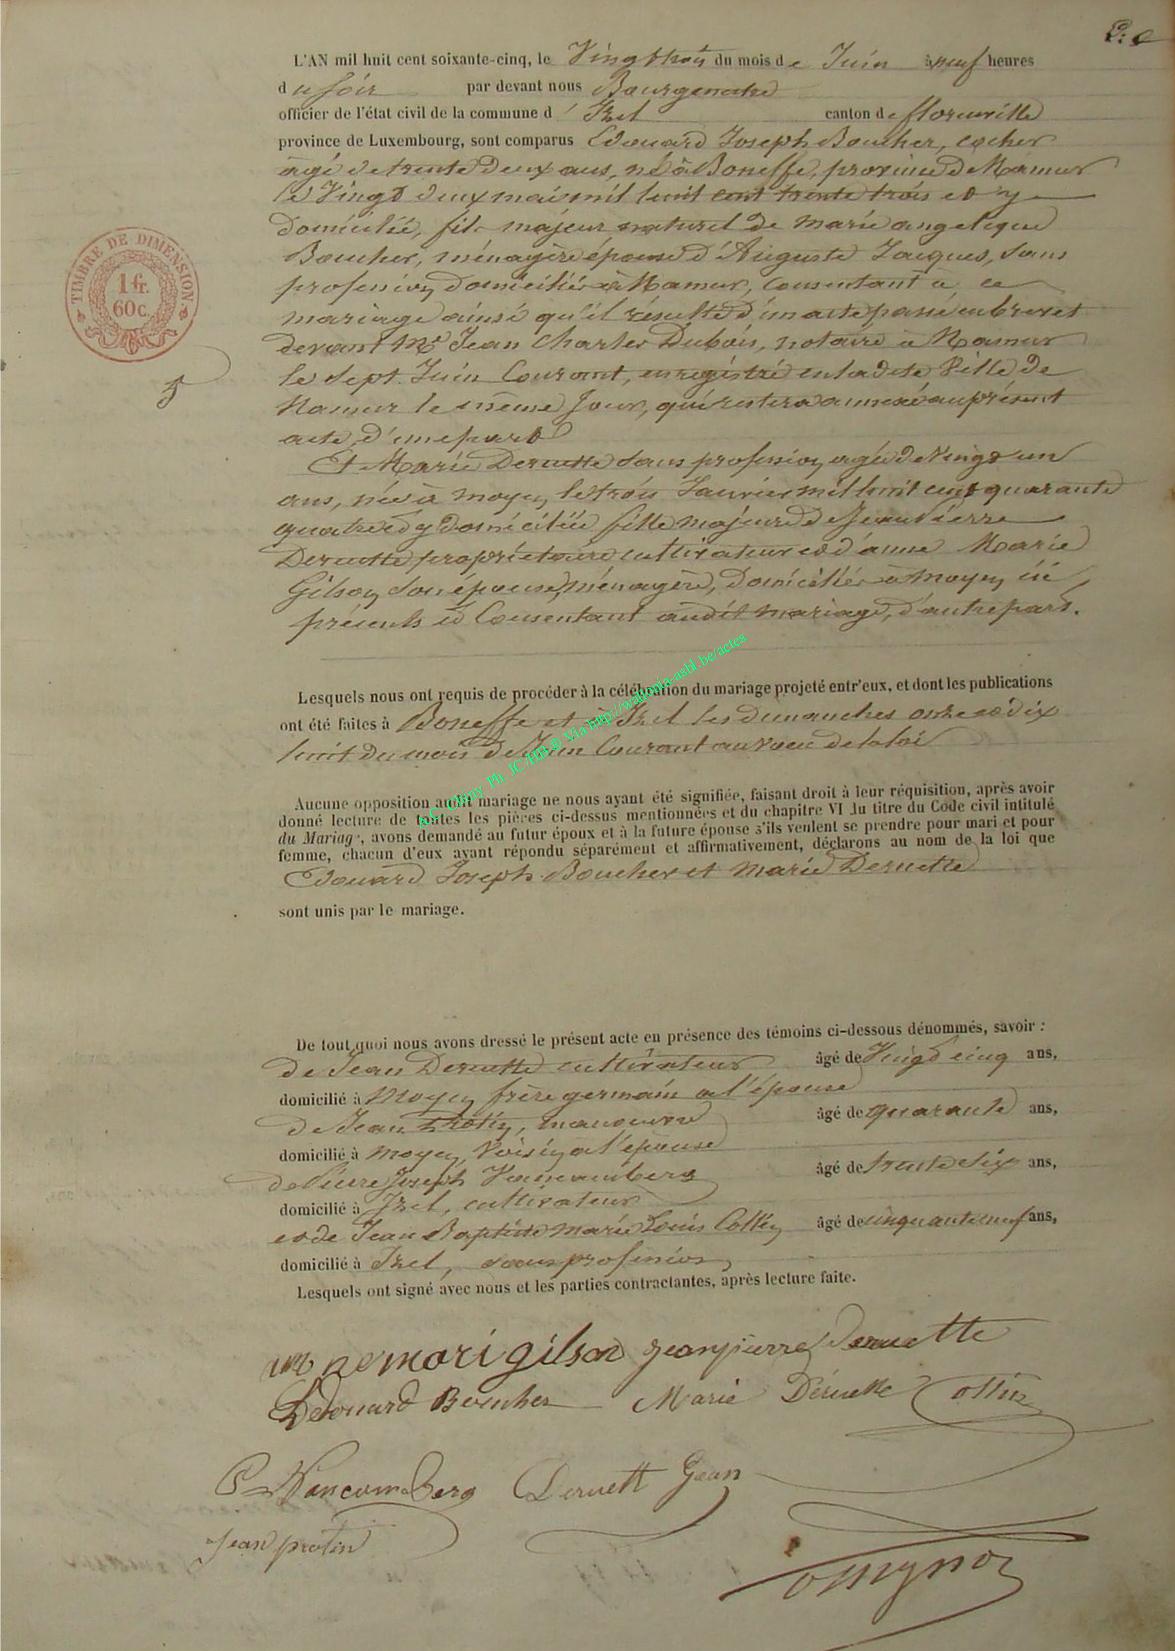 L'AN mil huit cent soixante-cinq, le Vingt trois du mois de Juin à neuf heures
du soir par devant nous Bourgmestre
officier de l'état civil de la commune d'Izel canton de florenville
province de Luxembourg, sont comparus Edouard Joseph Boucher, cocher
âgé de trente deux ans, né à Boneffe, province de Namur
le Vingt deux mai mil huit cent trente trois et y
domicilié, fils majeur naturel de marie angelique
Boucher, ménagère épouse d'Auguste Jacques, sans
profession domiciliée à Namur, consentant à ce
mariage ainsi qu'il résulte d'un acte passé en brevet
devant Me Jean Charles Dubois, notaire à Namur
le sept Juin Courant, enregistré en la dite Ville de
Namur le même jour, qui restera annexé au présent
acte, d'une part
Et Marie Deruette sans profession, agée de Vingt un
ans, née à moyen, le trois Janvier mil huit cent quarante
quatre et y domiciliée fille majeure de Jean Pierre
Deruette propriétaire cultivateur et d'anne Marie
Gilson son épouse, ménagère, domiciliés à moyen ici
présents et Consentant audit mariage, d'autre part.
TIMBRE DE DIMENSION
1 fr.
60c.
5
Lesquels nous ont requis de procéder à la célébration du mariage projeté entr'eux, et dont les publications
ont été faites à Boneffe et à Izel les dimanches onze et dix
huit du mois de Juin Courant au voeu de la loi
Aucune opposition audit mariage ne nous ayant été signifiée, faisant droit à leur réquisition, après avoir
donné lecture de toutes les pièces ci-dessus mentionnées et du chapitre VI du titre du Code civil intitulé
du Mariage, avons demandé au futur époux et à la future épouse s'ils veulent se prendre pour mari et pour
femme, chacun d'eux ayant répondu séparément et affirmativement, déclarons au nom de la loi que
Edouard Joseph Boucher et marie Deruette
sont unis par le mariage.
De tout quoi nous avons dressé le présent acte en présence des témoins ci-dessous dénommés, savoir :
de Jean Deruette cultivateur âgé de Vingt cinq ans,
domicilié à Moyen frère germain à l'épouse
de Jean Protin, manoeuvre âgé de quarante ans,
domicilié à moyen, Voisin à l'épouse
de Pierre Joseph Vancomberg âgé de trente six ans,
domicilié à Izel, cultivateur
et de Jean Baptiste marie Louis Collin âgé de cinquante neuf ans,
domicilié à Izel, sans profession
Lesquels ont signé avec nous et les parties contractantes, après lecture faite.
mari gilson Jean pierre deruette
Edouard Boucher Marie Déruette Collin
P Vancomberg Deruett Jean
Jean protin
via http://wallonia-asbl.be/actes